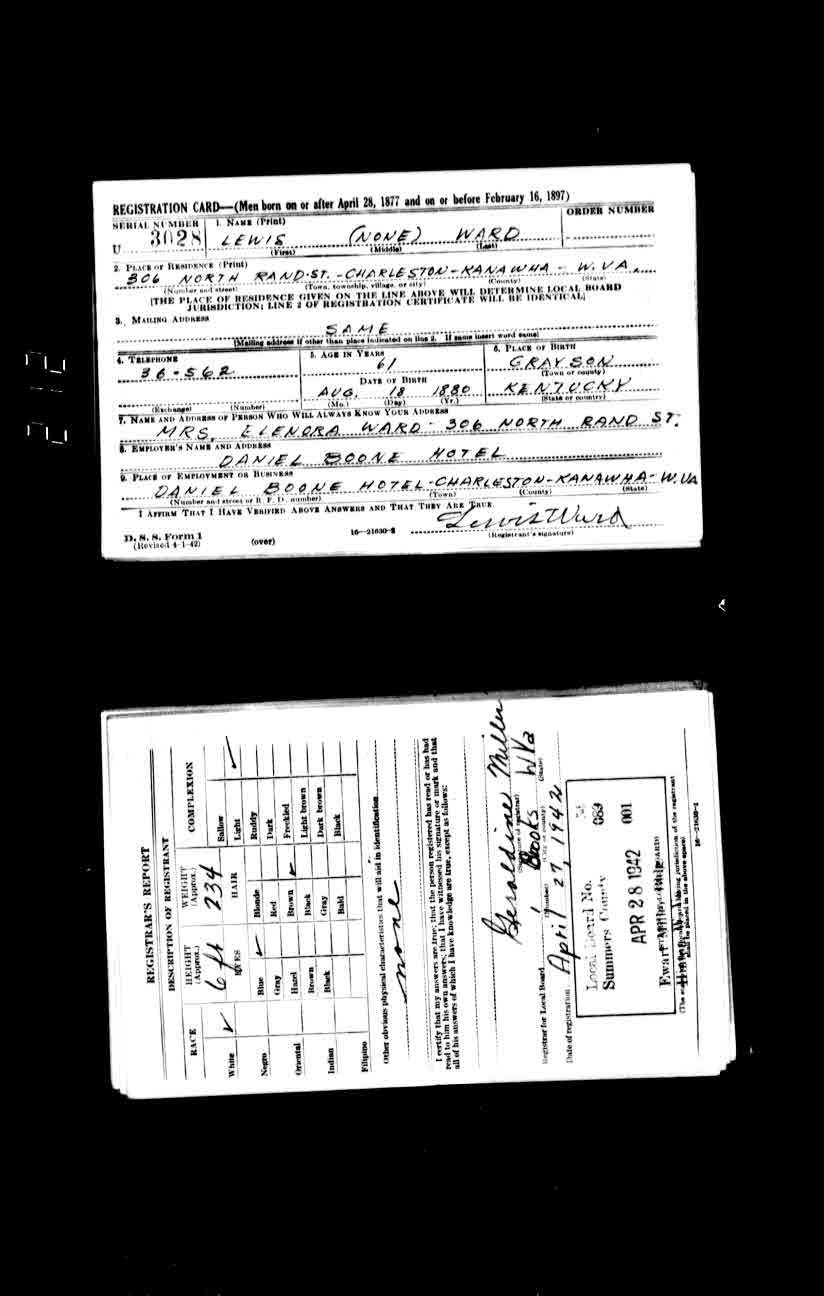 REGISTRATION CARD—(Men born on or after April 28, 1877 and on or before February 16, 1897)
SERIAL NUMBER 1. NAME (Print) ORDER NUMBER
U 3028 LEWIS (NONE) WARD
(First) (Middle) (Last)
2. PLACE OF RESIDENCE (Print)
306 NORTH RAND·ST.-CHARLESTON-KANAWHA- W.VA.
(Number and street) (Town, township, village, or city) (County) (State)
[THE PLACE OF RESIDENCE GIVEN ON THE LINE ABOVE WILL DETERMINE LOCAL BOARD
JURISDICTION; LINE 2 OF REGISTRATION CERTIFICATE WILL BE IDENTICAL]
3. MAILING ADDRESS
SAME
[Mailing address if other than place indicated on line 2. If same insert word same]
4. TELEPHONE 5. AGE IN YEARS 6. PLACE OF BIRTH
36-562 61 GRAYSON
(Town or county)
DATE OF BIRTH
AUG. 18 1880 KENTUCKY
(Exchange) (Number) (Mo.) (Day) (Yr.) (State or country)
7. NAME AND ADDRESS OF PERSON WHO WILL ALWAYS KNOW YOUR ADDRESS
MRS. ELENORA WARD- 306 NORTH RAND ST.
8. EMPLOYER'S NAME AND ADDRESS
DANIEL BOONE HOTEL
9. PLACE OF EMPLOYMENT OR BUSINESS
DANIEL BOONE HOTEL-CHARLESTON-KANAWHA-W.VA
(Number and street or R. F. D. number) (Town) (County) (State)
I AFFIRM THAT I HAVE VERIFIED ABOVE ANSWERS AND THAT THEY ARE TRUE.
Lewis Ward
D. S. S. Form 1 (Registrant's signature)
(Revised 4-1-42) (over) 16—21630-2
REGISTRAR'S REPORT
DESCRIPTION OF REGISTRANT
RACE HEIGHT (Approx.) WEIGHT (Approx.) COMPLEXION
6 ft 234
EYES HAIR
White ✓
Negro
Oriental
Indian
Filipino
Blue ✓
Gray
Hazel
Brown
Black
Blonde
Red
Brown ✓
Black
Gray
Bald
Sallow
Light ✓
Ruddy
Dark
Freckled
Light brown
Dark brown
Black
Other obvious physical characteristics that will aid in identification
none
I certify that my answers are true; that the person registered has read or has had
read to him his own answers; that I have witnessed his signature or mark and that
all of his answers of which I have knowledge are true, except as follows:
Geraldine Miller
(Signature of registrar)
Registrar for Local Board 1 Brooks W Va
(Number) (City or county) (State)
Date of registration April 27, 1942
Local Board No. 089
Summers County 001
APR 28 1942
16—21630-1